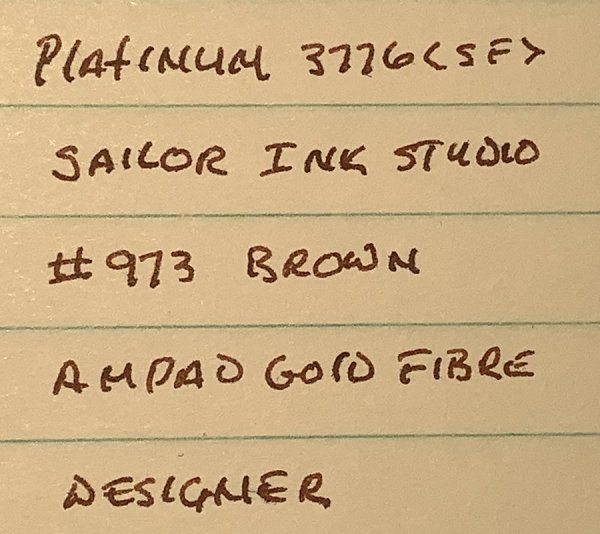 PLATINUM 3776 <SF>
SAILOR INK STUDIO
#973 BROWN
AMPAD GOLD FIBRE
DESIGNER